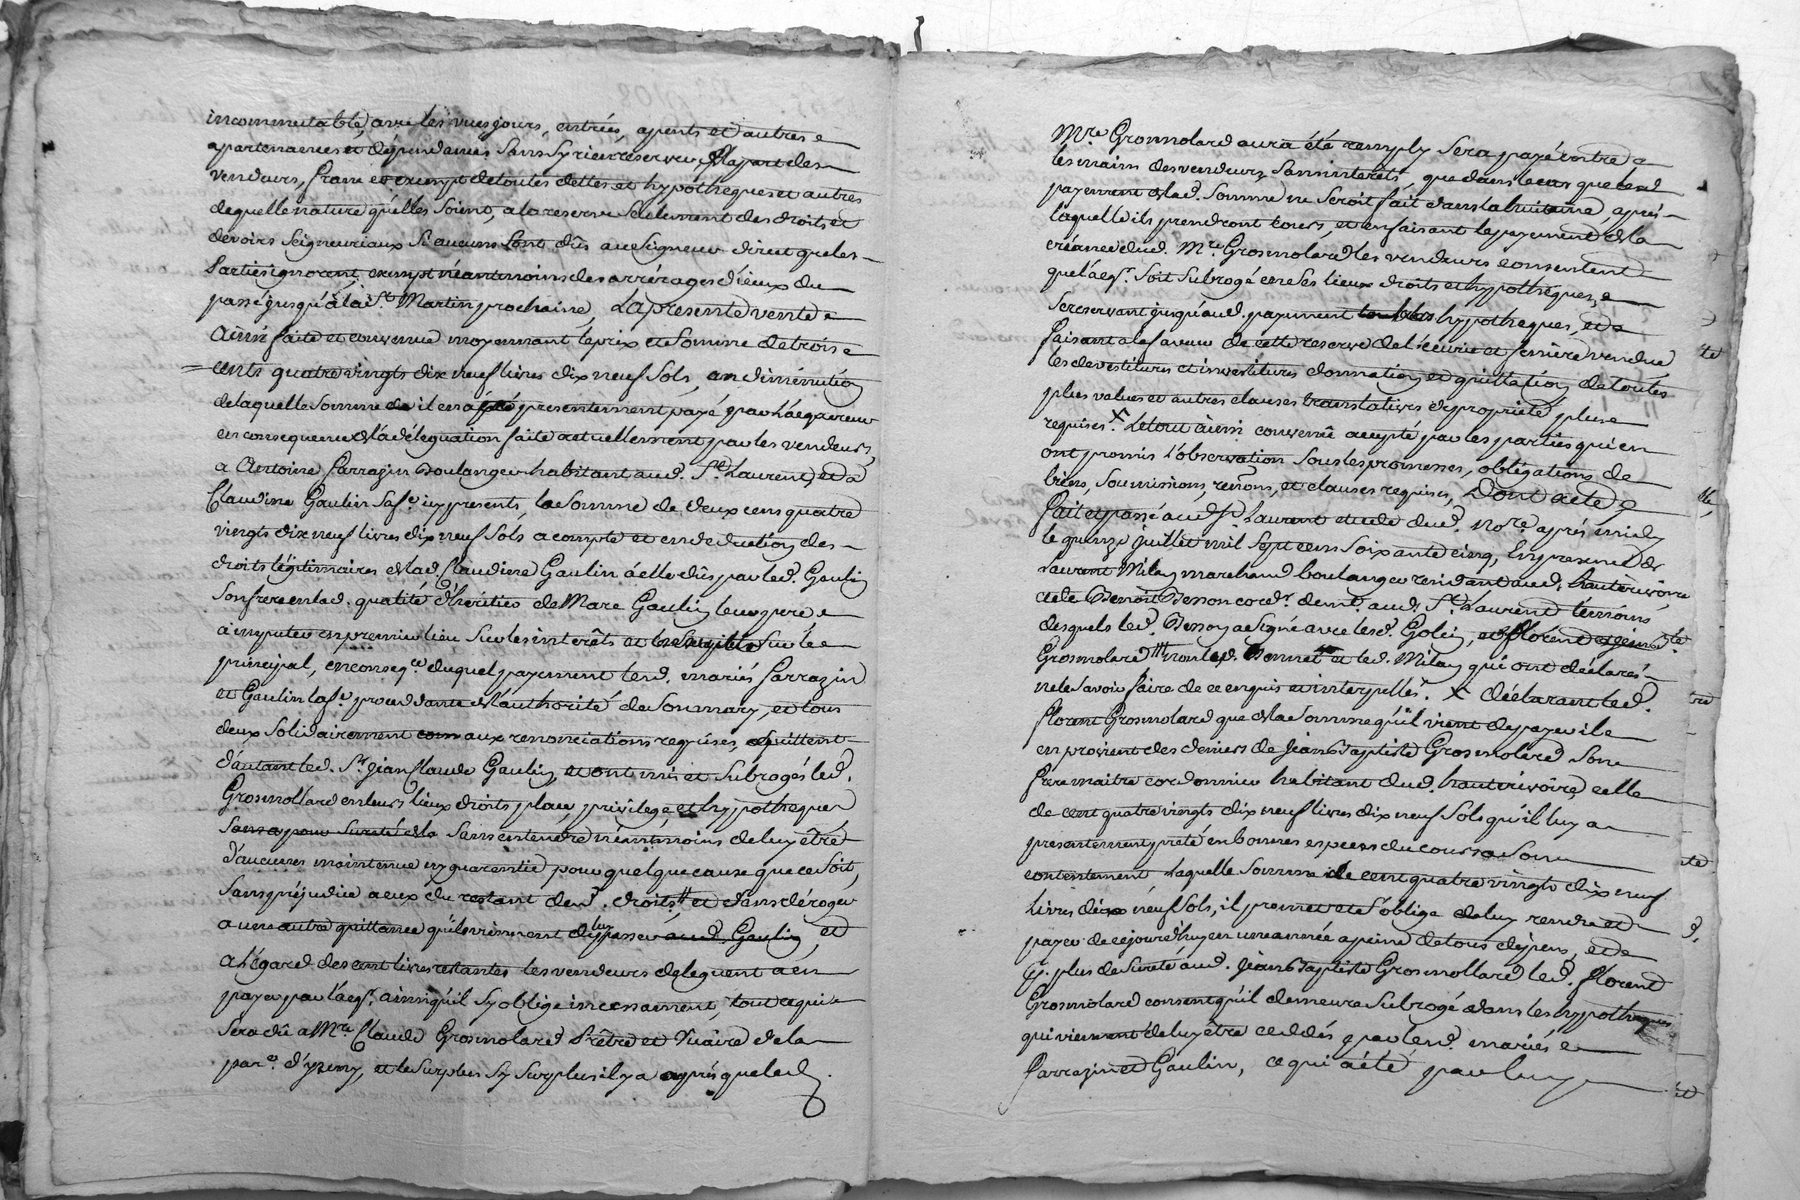 incommutable, avec les vues, jours, entrées, apents et autres
apartenances et dépendances sans sy rien reserver de la part des
vendeurs, franc et exempt de toutes dettes et hypotheques et autres
de quelle nature qu'elles soient, a la reserve seulement des droits et
devoirs seigneuriaux si aucuns sont dûs au seigneur direct que les
parties ignorent, exempt néantmoins des arrérages d'iceux du
passé jusqu'à la St. Martin prochaine, la presente vente
ainsi faite et convenue moyennant le prix et somme de trois
cents quatre vingts dix neuf livres dix neuf sols, en diminution
de laquelle somme il en a été presentement payé par l'aquereur
en consequence de la délegation faite actuellement par les vendeurs,
a Antoine Sarrazin boulanger habitant aud. St. Laurent, et à
Claudine Gaulin sa fe. icy presents, la somme de deux cens quatre
vingts dix neuf livres dix neuf sols a compte et en deduction des
droits légitimaires de lad. Claudine Gaulin à elle dûs par led. Gaulin
son frere en lad. qualité d'héritier de Marc Gaulin leur pere
à imputer en premier lieu sur les interêts et le surplus sur le
principal, en conseqce. duquel payement lesd. mariés Sarrazin
et Gaulin lad. fe. procedante de l'authorité de son mary, et tous
deux solidairement aux renonciations requises, quittent
d'autant led. Sr. Jean Claude Gaulin, et ont mis et subrogés led.
Grosmollard en leurs lieux droits, place, privilege et hypotheque
sans entendre néantmoins de luy être
d'aucunes maintenue ny guarentie pour quelque cause que ce soit,
sans préjudice a eux du restant desd. droits et sans déroger
a une autre quittance qu'ils viennent de luy passer, et
a l'égard des cent livres restantes les vendeurs deleguent a en
payer par l'aqr. ainsi qu'il sy oblige incessament, tout ce qui
sera dû a Mre. Claude Grosmolard Prêtre et Vicaire de la
parse. d'yzeron, et le surplus sy surplus il y a après que led.
Mre. Grosmolard aura été remply sera payé entre
les mains des vendeurs sans interêts que dans le cas que led.
payement de lad. somme ne seroit fait dans la huitaine, après
laquelle ils prendront cours, et en faisant le payement de la
créance dud. Mre. Grosmolard les vendeurs consentent
que l'aqr. soit subrogé en ses lieux droits et hypotheques,
se reservant jusqu'aud. payement hypotheques, et
faisant a la faveur de cette reserve de l'écurie et feniere vendue
les devestitures et investitures donnation et quittation de toutes
plus values et autres clauses translatives de propriété plus
requises. X Le tout ainsi convenû accepté par les parties qui en
ont promis l'observation sous les promesses, obligations de
biens, soumissions, renons. et clauses requises, Dont acte
fait et passé aud. St. Laurent etude dud. nore. après midy
le quinze juillet mil sept cens soixante cinq, En presence de
Laurent Milan marchand boulanger residant aud. hauterivoire
et de Benoît Besson cordr. demt. aud. St. Laurent témoins
desquels led. Besson a signé avec lesd. Golin, et florent et jean bte.
Grosmolard non led. Bonnet et led. Milan qui ont déclarés
ne le savoir faire de ce enquis et interpellés. X déclarant led.
florent Grosmolard que de la somme qu'il vient de payer il
en provient des deniers de Jean Baptiste Grosmolard son
frere maitre cordonnier habitant dud. hauterivoire, celle
de cent quatre vingts dix neuf livres dix neuf sols qu'il luy a
presentement preté en bonnes especes du cours a son
contentement laquelle somme de cent quatre vingts dix neuf
livres dix neuf sols, il promet et s'oblige de luy rendre et
payer de cejourd'huy en une année a peine de tous dépens, et
pr. plus de sureté aud. Jean Baptiste Grosmollard led. florent
Grosmolard consent qu'il demeure subrogé dans les hypotheques
qui viennent de luy être ceddés par lesd. mariés
Sarrazin et Gaulin, ce qui a été par luy